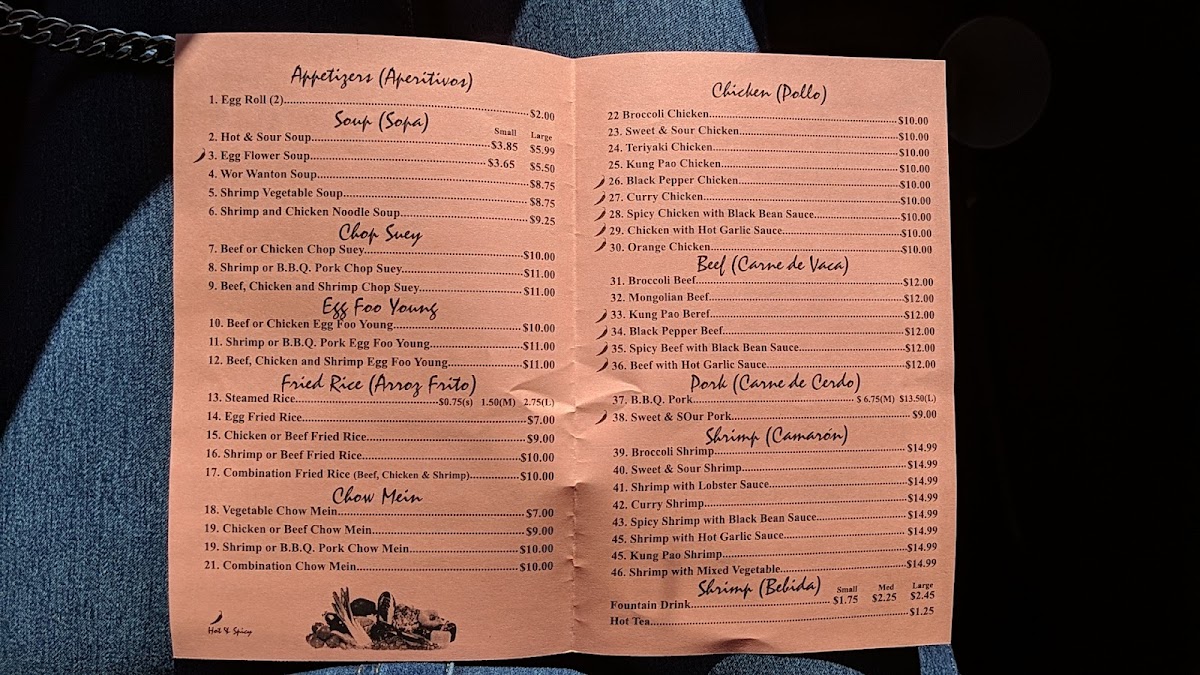 Appetizers (Aperitivos)
1. Egg Roll (2)...$2.00
Soup (Sopa)
Small Large
2. Hot & Sour Soup...$3.85 $5.99
3. Egg Flower Soup...$3.65 $5.50
4. Wor Wanton Soup...$8.75
5. Shrimp Vegetable Soup...$8.75
6. Shrimp and Chicken Noodle Soup...$9.25
Chop Suey
7. Beef or Chicken Chop Suey...$10.00
8. Shrimp or B.B.Q. Pork Chop Suey...$11.00
9. Beef, Chicken and Shrimp Chop Suey...$11.00
Egg Foo Young
10. Beef or Chicken Egg Foo Young...$10.00
11. Shrimp or B.B.Q. Pork Egg Foo Young...$11.00
12. Beef, Chicken and Shrimp Egg Foo Young...$11.00
Fried Rice (Arroz Frito)
13. Steamed Rice...$0.75(s) 1.50(M) 2.75(L)
14. Egg Fried Rice...$7.00
15. Chicken or Beef Fried Rice...$9.00
16. Shrimp or Beef Fried Rice...$10.00
17. Combination Fried Rice (Beef, Chicken & Shrimp)...$10.00
Chow Mein
18. Vegetable Chow Mein...$7.00
19. Chicken or Beef Chow Mein...$9.00
19. Shrimp or B.B.Q. Pork Chow Mein...$10.00
21. Combination Chow Mein...$10.00
Hot & Spicy
Chicken (Pollo)
22 Broccoli Chicken...$10.00
23. Sweet & Sour Chicken...$10.00
24. Teriyaki Chicken...$10.00
25. Kung Pao Chicken...$10.00
26. Black Pepper Chicken...$10.00
27. Curry Chicken...$10.00
28. Spicy Chicken with Black Bean Sauce...$10.00
29. Chicken with Hot Garlic Sauce...$10.00
30. Orange Chicken...$10.00
Beef (Carne de Vaca)
31. Broccoli Beef...$12.00
32. Mongolian Beef...$12.00
33. Kung Pao Beref...$12.00
34. Black Pepper Beef...$12.00
35. Spicy Beef with Black Bean Sauce...$12.00
36. Beef with Hot Garlic Sauce...$12.00
Pork (Carne de Cerdo)
37. B.B.Q. Pork...$ 6.75(M) $13.50(L)
38. Sweet & SOur Pork...$9.00
Shrimp (Camarón)
39. Broccoli Shrimp...$14.99
40. Sweet & Sour Shrimp...$14.99
41. Shrimp with Lobster Sauce...$14.99
42. Curry Shrimp...$14.99
43. Spicy Shrimp with Black Bean Sauce...$14.99
45. Shrimp with Hot Garlic Sauce...$14.99
45. Kung Pao Shrimp...$14.99
46. Shrimp with Mixed Vegetable...$14.99
Shrimp (Bebida)
Small Med Large
Fountain Drink...$1.75 $2.25 $2.45
Hot Tea...$1.25